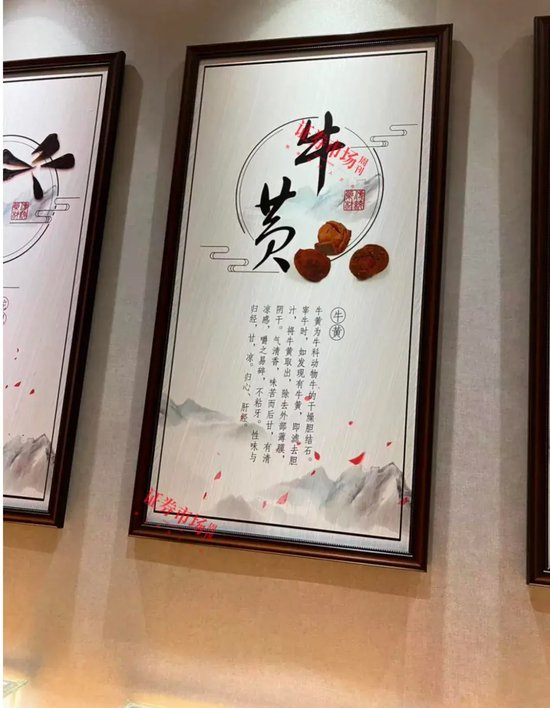 牛黄
牛黄
牛黄为牛科动物牛的干燥胆结石。
宰牛时，如发现有牛黄，即滤去胆
汁，将牛黄取出，除去外部薄膜，
阴干。气清香，味苦而后甘，有清
凉感，嚼之易碎，不粘牙。性味与
归经，甘，凉。归心、肝经。
证券市场周刊
证券市场周刊